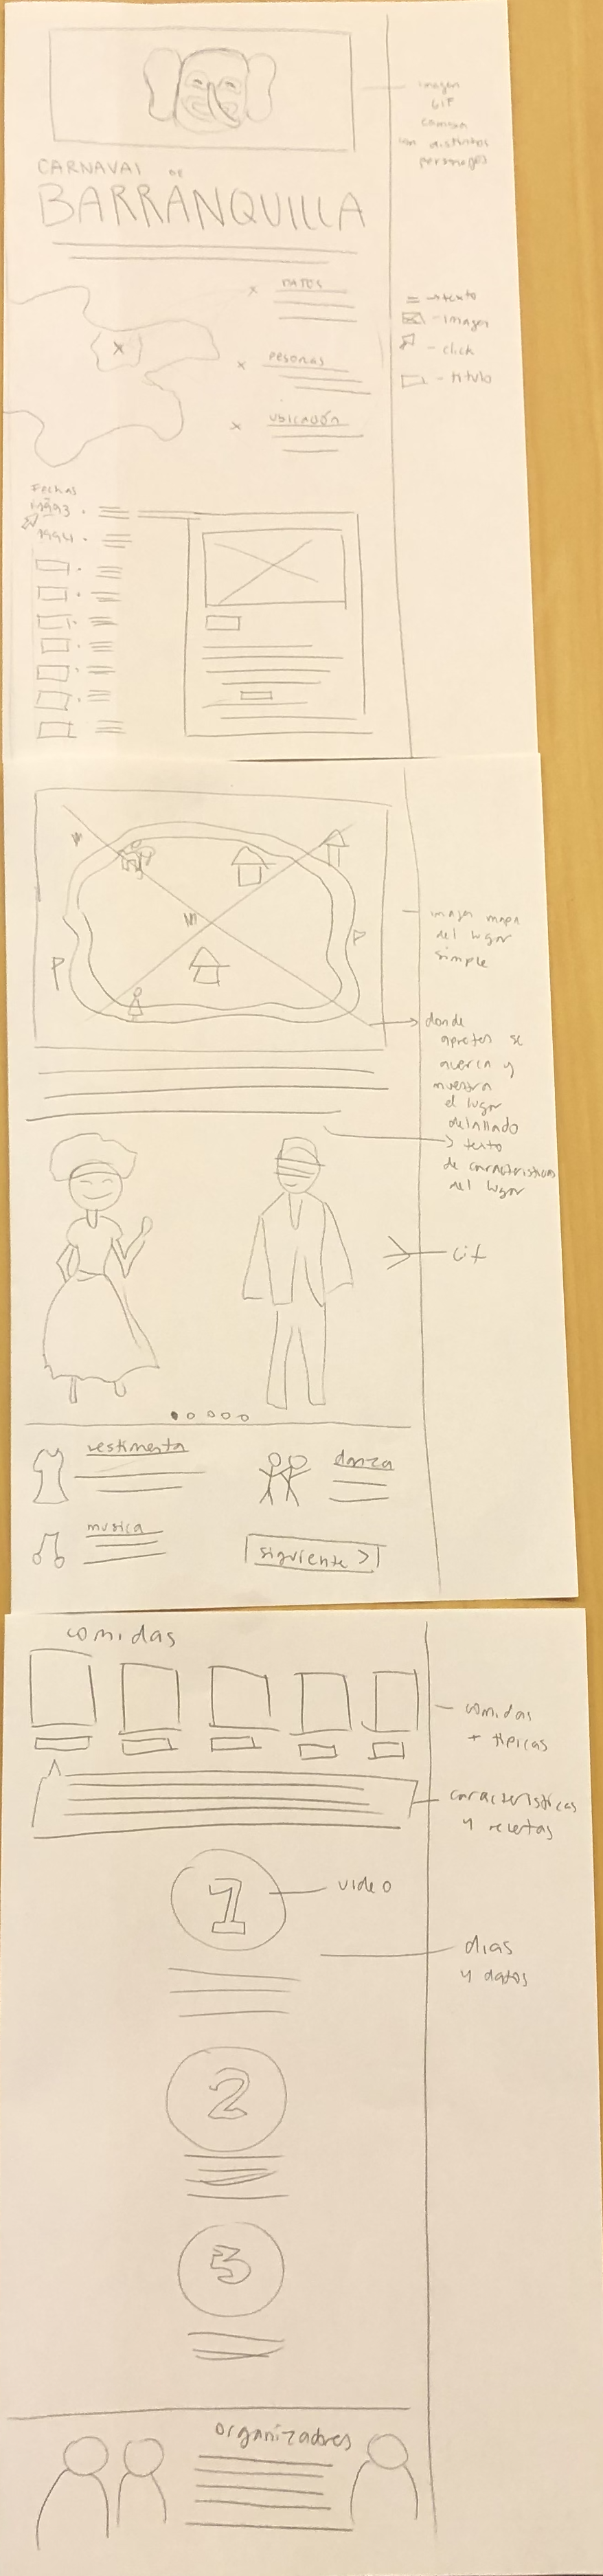 imagen
GIF
cambia
con distintos
personajes
CARNAVAL DE
BARRANQUILLA
DATOS
PESONAS
UBICACIÓN
= → texto
- imagen
- click
- titulo
Fechas
1993
1994
imagen mapa
del lugar
simple
donde
apretas se
acerca y
muestra
el lugar
detallado
texto
de caracteristicas
del lugar
Gif
vestimenta
danza
musica
siguiente >
comidas
comidas
+ tipicas
caracteristicas
y recetas
1
video
dias
y datos
2
3
organizadores